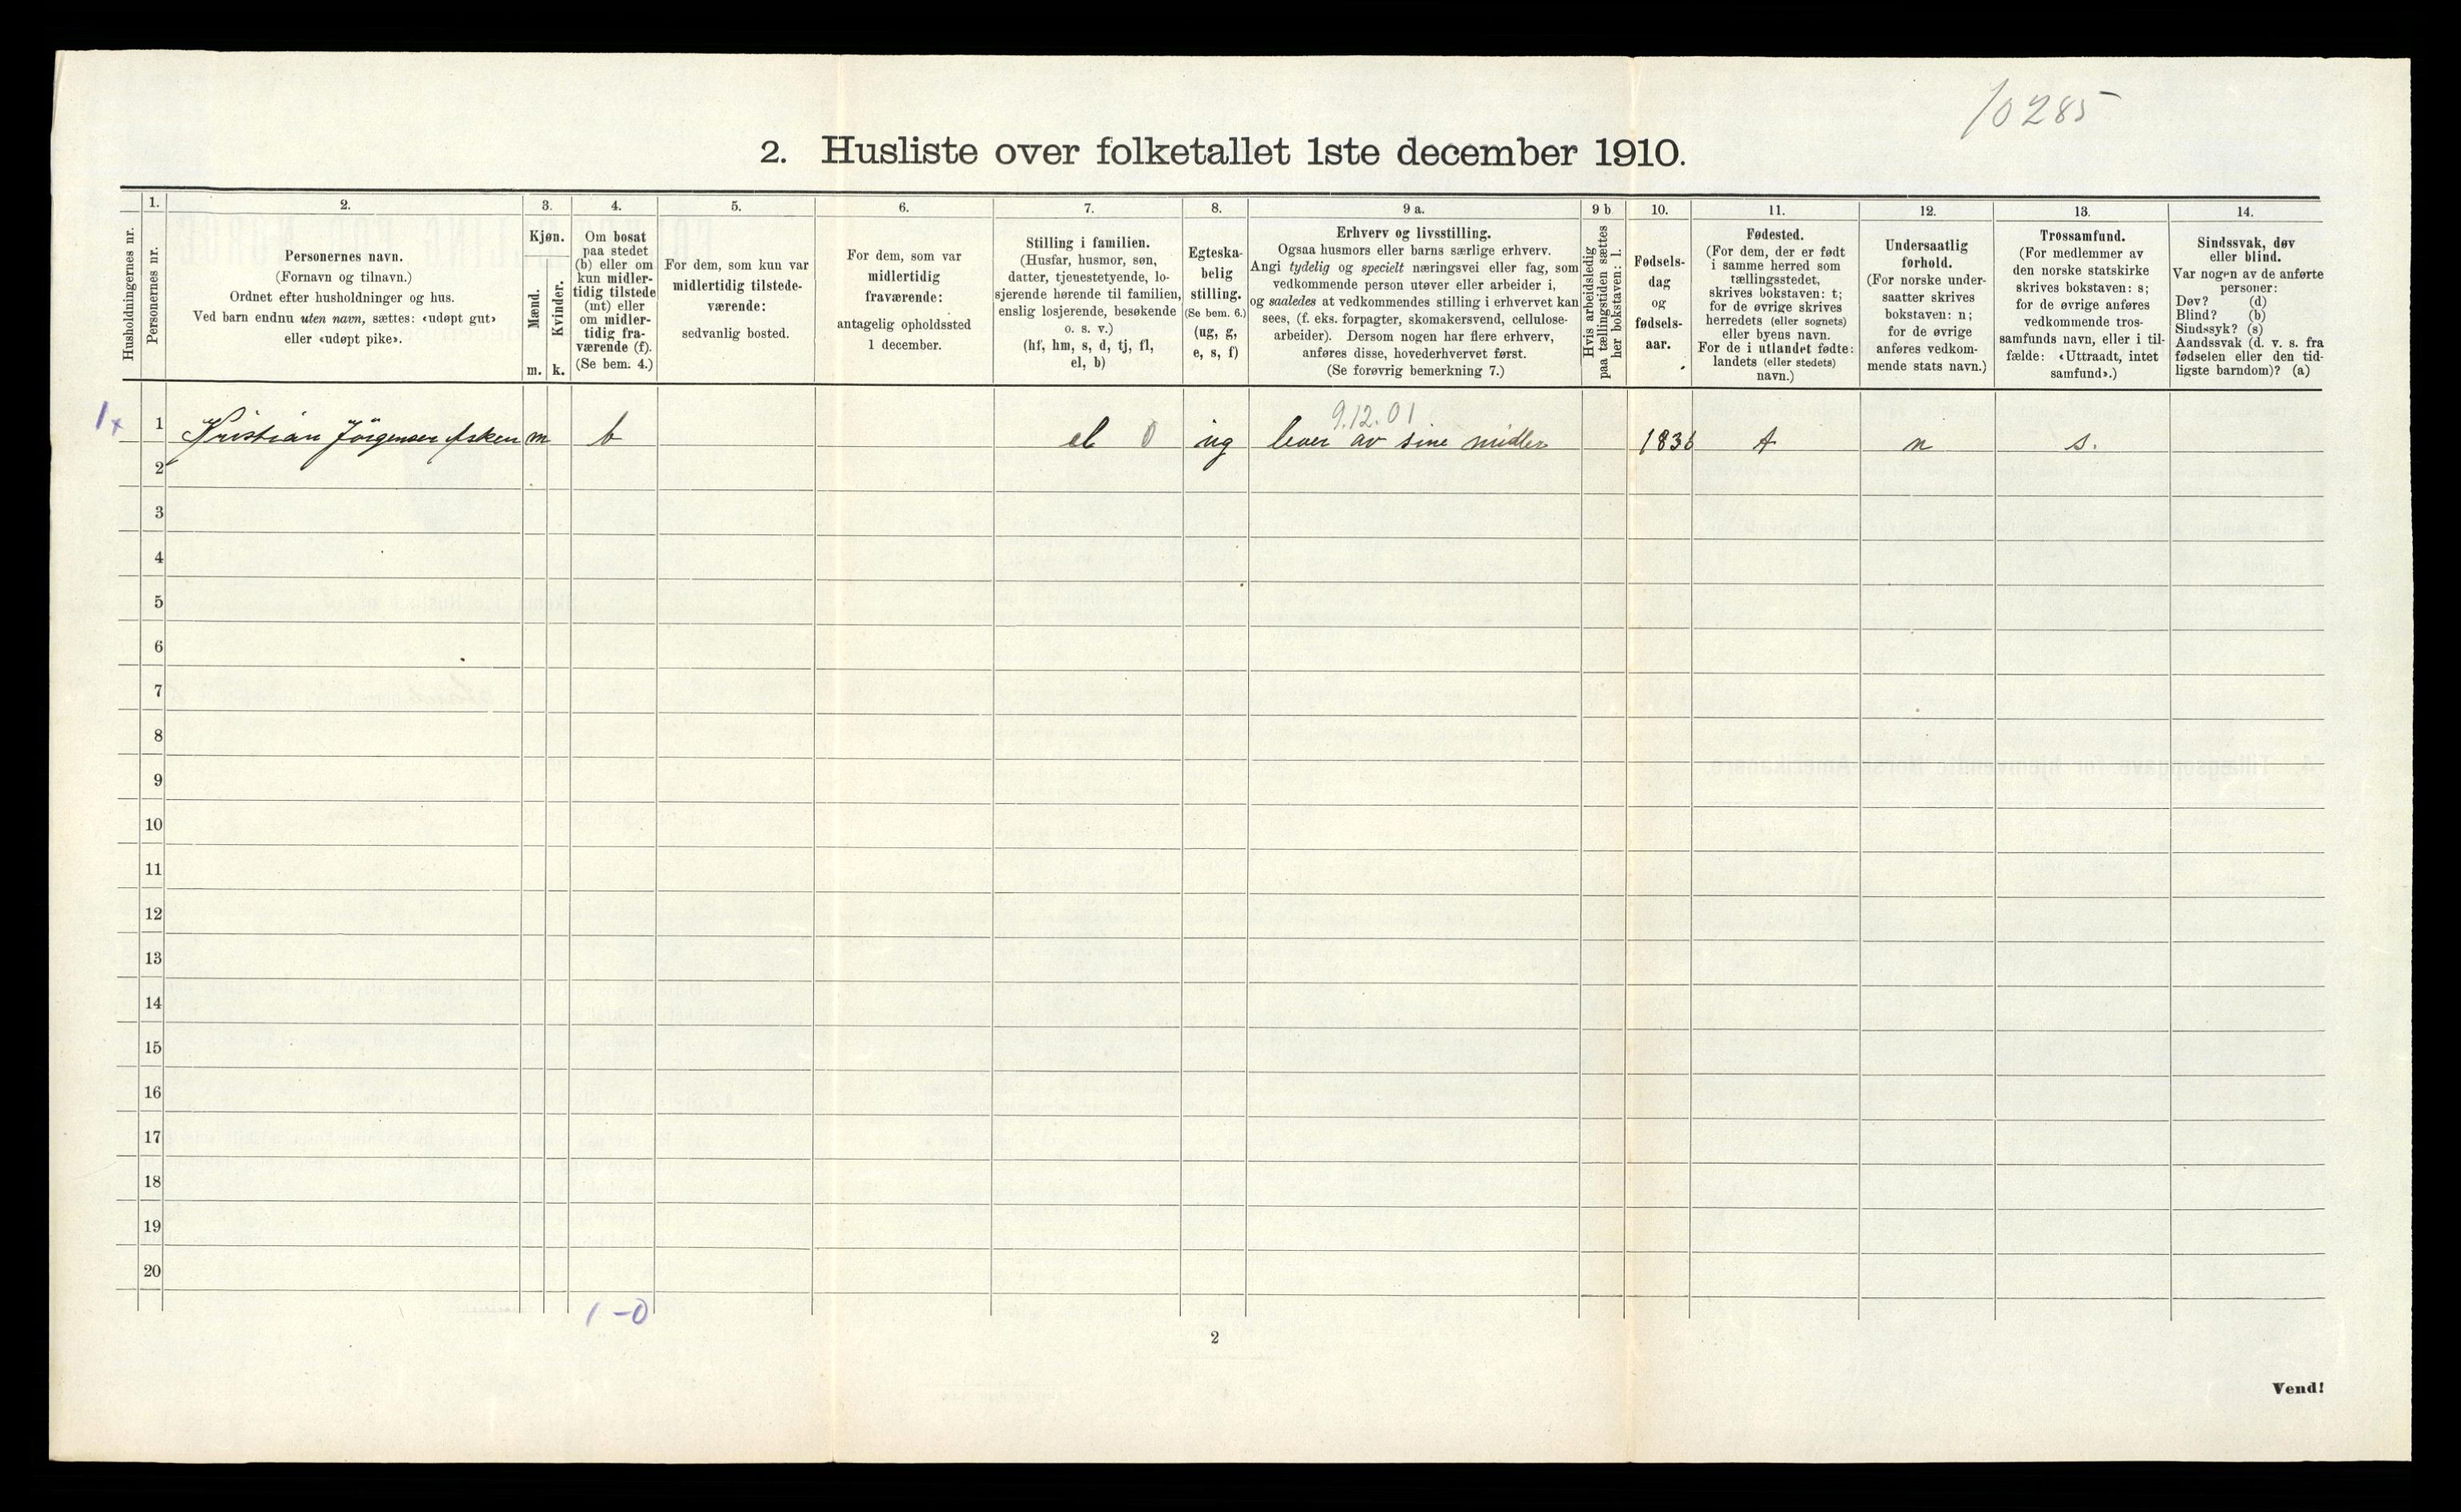 10285
2. Husliste over folketallet 1ste december 1910.
Husholdningernes nr.
1.
Personernes nr.
2.
Personernes navn.
(Fornavn og tilnavn.)
Ordnet efter husholdninger og hus.
Ved barn endnu uten navn, sættes: «udøpt gut»
eller «udøpt pike».
3.
Kjøn.
Mænd.
Kvinder.
m. k.
4.
Om bosat
paa stedet
(b) eller om
kun midler-
tidig tilstede
(mt) eller
om midler-
tidig fra-
værende (f).
(Se bem. 4.)
5.
For dem, som kun var
midlertidig tilstede-
værende:
sedvanlig bosted.
6.
For dem, som var
midlertidig
fraværende:
antagelig opholdssted
1 december.
7.
Stilling i familien.
(Husfar, husmor, søn,
datter, tjenestetyende, lo-
sjerende hørende til familien,
enslig losjerende, besøkende
o. s. v.)
(hf, hm, s, d, tj, fl,
el, b)
8.
Egteska-
belig
stilling.
(Se bem. 6.)
(ug, g,
e, s, f)
9 a.
Erhverv og livsstilling.
Ogsaa husmors eller barns særlige erhverv.
Angi tydelig og specielt næringsvei eller fag, som
vedkommende person utøver eller arbeider i,
og saaledes at vedkommendes stilling i erhvervet kan
sees, (f. eks. forpagter, skomakersvend, cellulose-
arbeider). Dersom nogen har flere erhverv,
anføres disse, hovederhvervet først.
(Se forøvrig bemerkning 7.)
9 b
Hvis arbeidsledig
paa tællingstiden sættes
her bokstaven: l.
10.
Fødsels-
dag
og
fødsels-
aar.
11.
Fødested.
(For dem, der er født
i samme herred som
tællingsstedet,
skrives bokstaven: t;
for de øvrige skrives
herredets (eller sognets)
eller byens navn.
For de i utlandet fødte:
landets (eller stedets)
navn.)
12.
Undersaatlig
forhold.
(For norske under-
saatter skrives
bokstaven: n;
for de øvrige
anføres vedkom-
mende stats navn.)
13.
Trossamfund.
(For medlemmer av
den norske statskirke
skrives bokstaven: s;
for de øvrige anføres
vedkommende tros-
samfunds navn, eller i til-
fælde: «Uttraadt, intet
samfund».)
14.
Sindssvak, døv
eller blind.
Var nogen av de anførte
personer:
Døv? (d)
Blind? (b)
Sindssyk? (s)
Aandssvak (d. v. s. fra
fødselen eller den tid-
ligste barndom)? (a)
9.12.01
1x 1 Kristian Jörgensen m b el 0 ug lever av sine midler 1836 t n s.
2
3
4
5
6
7
8
9
10
11
12
13
14
15
16
17
18
19
20
1 - 0
2
Vend!